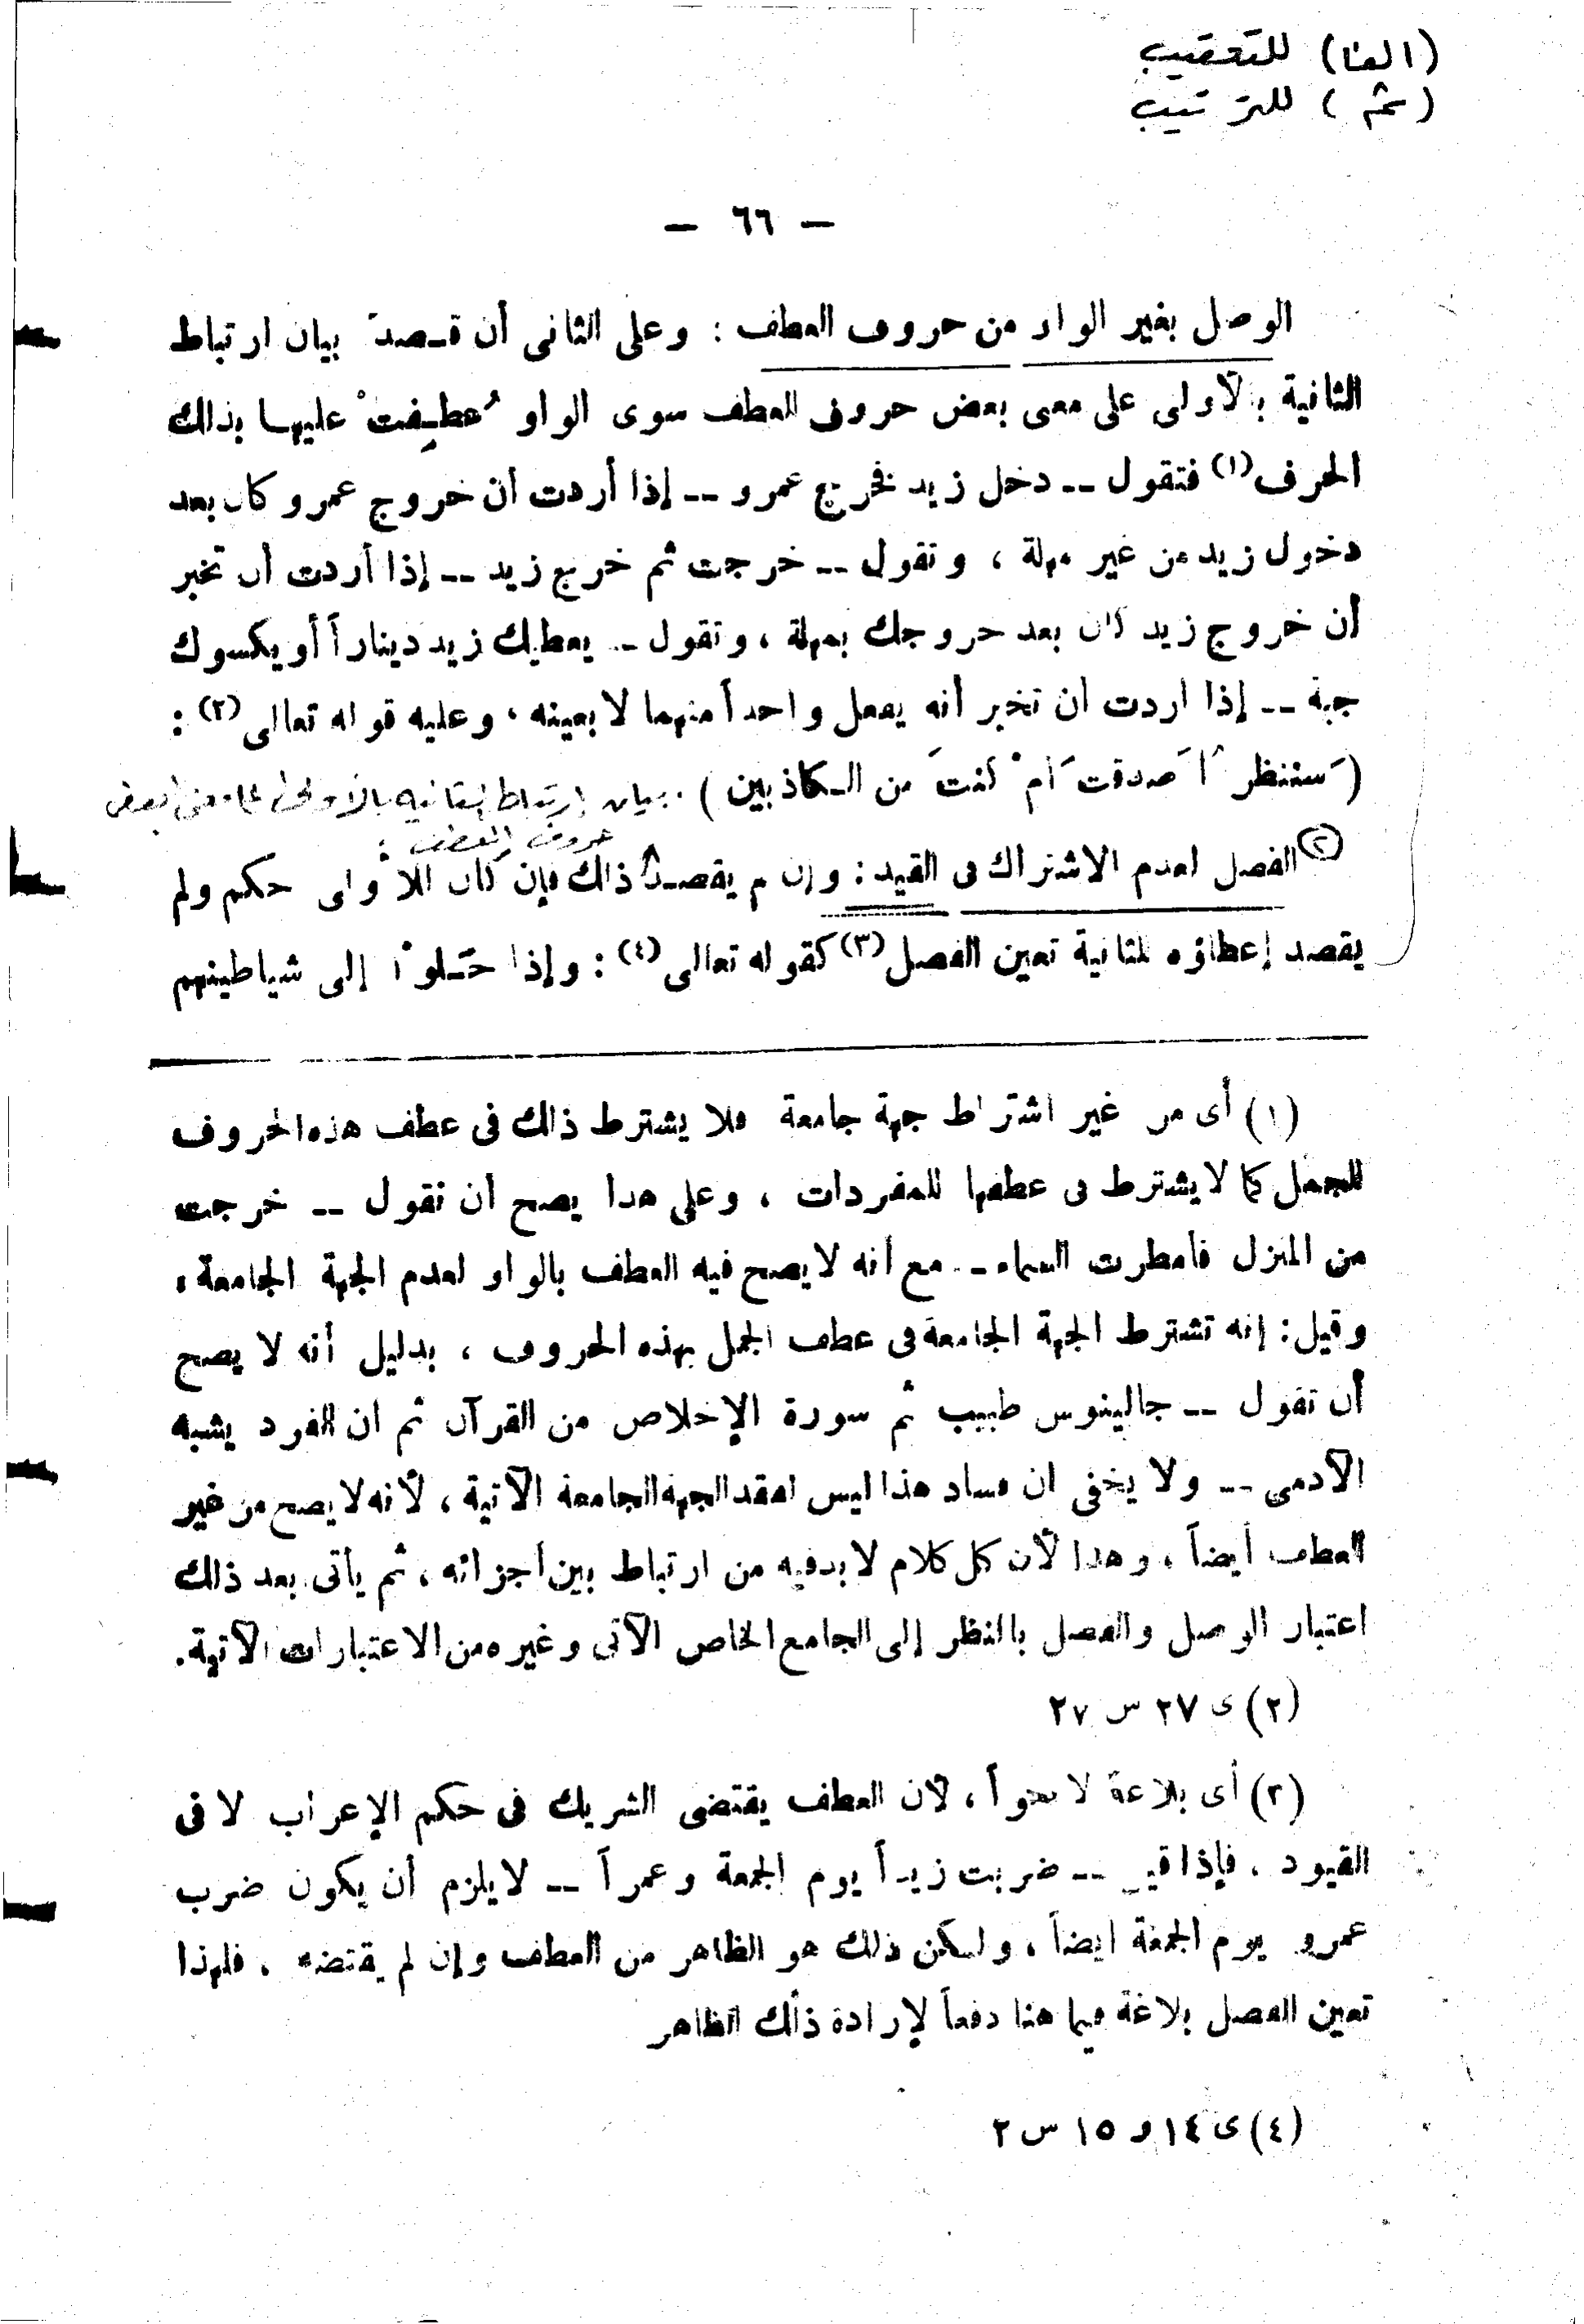 (الفا) للتعقيب
(ثم) للترتيب
— ٦٦ —
الوصل بغير الواو من حروف العطف : وعلى الثانى أن قُصد بيان ارتباط
الثانية بالأولى على معنى بعض حروف العطف سوى الواو عُطِفتْ عليها بذلك
الحرف (١) فتقول -- دخل زيد فخرج عمرو -- إذا أردت أن خروج عمرو كان بعد
دخول زيد من غير مهلة ، وتقول -- خرجت ثم خرج زيد -- إذا أردت أن تخبر
أن خروج زيد كان بعد خروجك بمهلة ، وتقول -- يعطيك زيد ديناراً أو يكسوك
جبة -- إذا أردت أن تخبر أنه يفعل واحداً منهما لا بعينه ، وعليه قوله تعالى (٢) :
(سَننظر أَصدقت أَمْ كنتَ من الكاذبين) . بيان إرتباط الثانيه بالأولى على معنى بعض
حروف العطف :
(٢) الفصل لعدم الاشتراك فى القيد : وإن لم يقصد ذلك فإن كان للأولى حكم ولم
يقصد إعطاؤه للثانية تعين الفصل (٣) كقوله تعالى (٤) : وإذا خَلوْا إلى شياطينهم
(١) أى من غير اشتراط جهة جامعة فلا يشترط ذلك فى عطف هذه الحروف
للجمل كما لا يشترط فى عطفها للمفردات ، وعلى هذا يصح أن نقول -- خرجت
من المنزل فأمطرت السماء -- مع أنه لا يصح فيه العطف بالواو لعدم الجهة الجامعة ،
وقيل : إنه تشترط الجهة الجامعة فى عطف الجمل بهذه الحروف ، بدليل أنه لا يصح
أن تقول -- جالينوس طبيب ثم سورة الإخلاص من القرآن ثم ان القرد يشبه
الآدمى -- ولا يخفى ان فساد هذا ليس لفقد الجهة الجامعة الآتية ، لأنه لا يصح من غير
العطف أيضاً ، وهذا لأن كل كلام لا بد فيه من ارتباط بين أجزائه ، ثم يأتى بعد ذلك
اعتبار الوصل والفصل بالنظر إلى الجامع الخاص الآتى وغيره من الاعتبارات الآتية .
(٢) ى ٢٧ س ٢٧
(٣) أى بلاغة لا نحواً ، لأن العطف يقتضى التشريك فى حكم الإعراب لا فى
القيود ، فإذا قيل -- ضربت زيداً يوم الجمعة وعمراً -- لا يلزم أن يكون ضرب
عمرو يوم الجمعة أيضاً ، ولكن ذلك هو الظاهر من العطف وإن لم يقتضه ، فلهذا
تعين الفصل بلاغة فيما هنا دفعاً لإرادة ذلك الظاهر
(٤) ى ١٤ و ١٥ س ٢